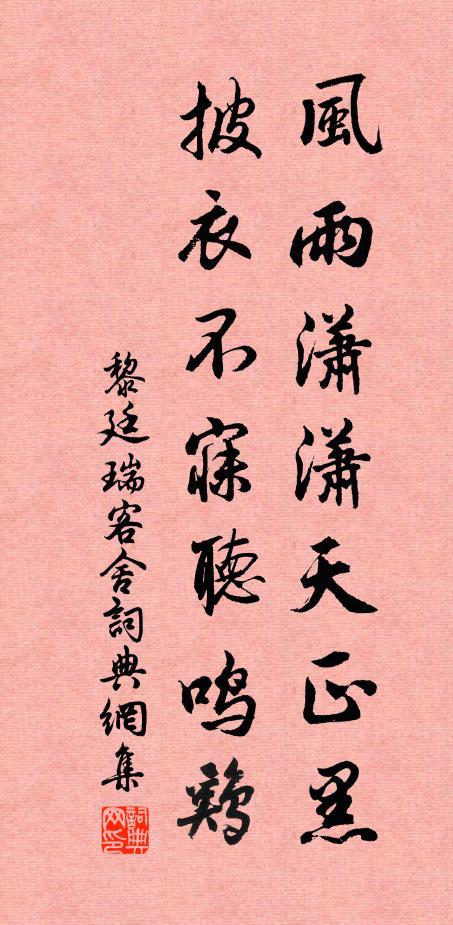 風雨瀟瀟天正黑
披衣不寐聽鳴鷄
黎廷瑞客舍詞典網集
詞典网印